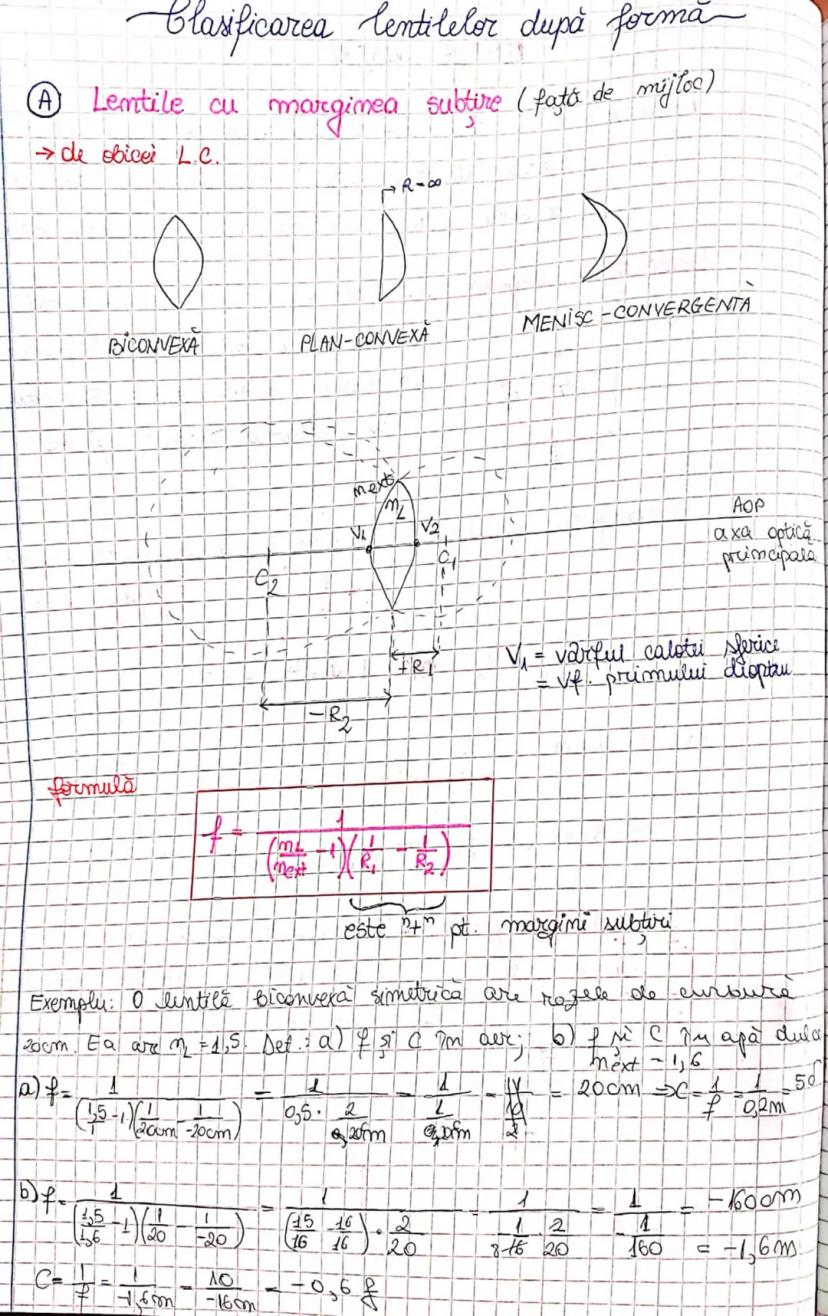 Clasificarea lentilelor după formă
Ⓐ Lentile cu marginea subțire (față de mijloc)
→ de obicei L.C.
R=∞
BICONVEXĂ PLAN-CONVEXĂ MENISC-CONVERGENTĂ
next
nL
V1 V2
C2 C1
AOP
axa optică
principală
+R1
-R2
V1 = vârful calotei sferice
= vf. primului dioptru
formulă
f = 1 / ((nL/next - 1)(1/R1 - 1/R2))
este "+" pt. margini subțiri
Exemplu: O lentilă biconvexă simetrică are razele de curbură
20cm. Ea are nL = 1,5. Det.: a) f și C în aer; b) f și C în apă dulce
next = 1,6
a) f = 1 / ((1,5/1 - 1)(1/20cm - 1/-20cm)) = 1 / (0,5 · 2/20cm) = = 20cm ⇒ C = 1/f = 1/0,2m = 5δ
b) f = 1 / ((1,5/1,6 - 1)(1/20 - 1/-20)) = 1 / ((15/16 - 16/16) · 2/20) = 1 / (-1/16 · 2/20) = 1 / (-1/160) = -160cm
= -1,6m
C = 1/f = 1/-1,6m = 10/-16m = -0,6 δ